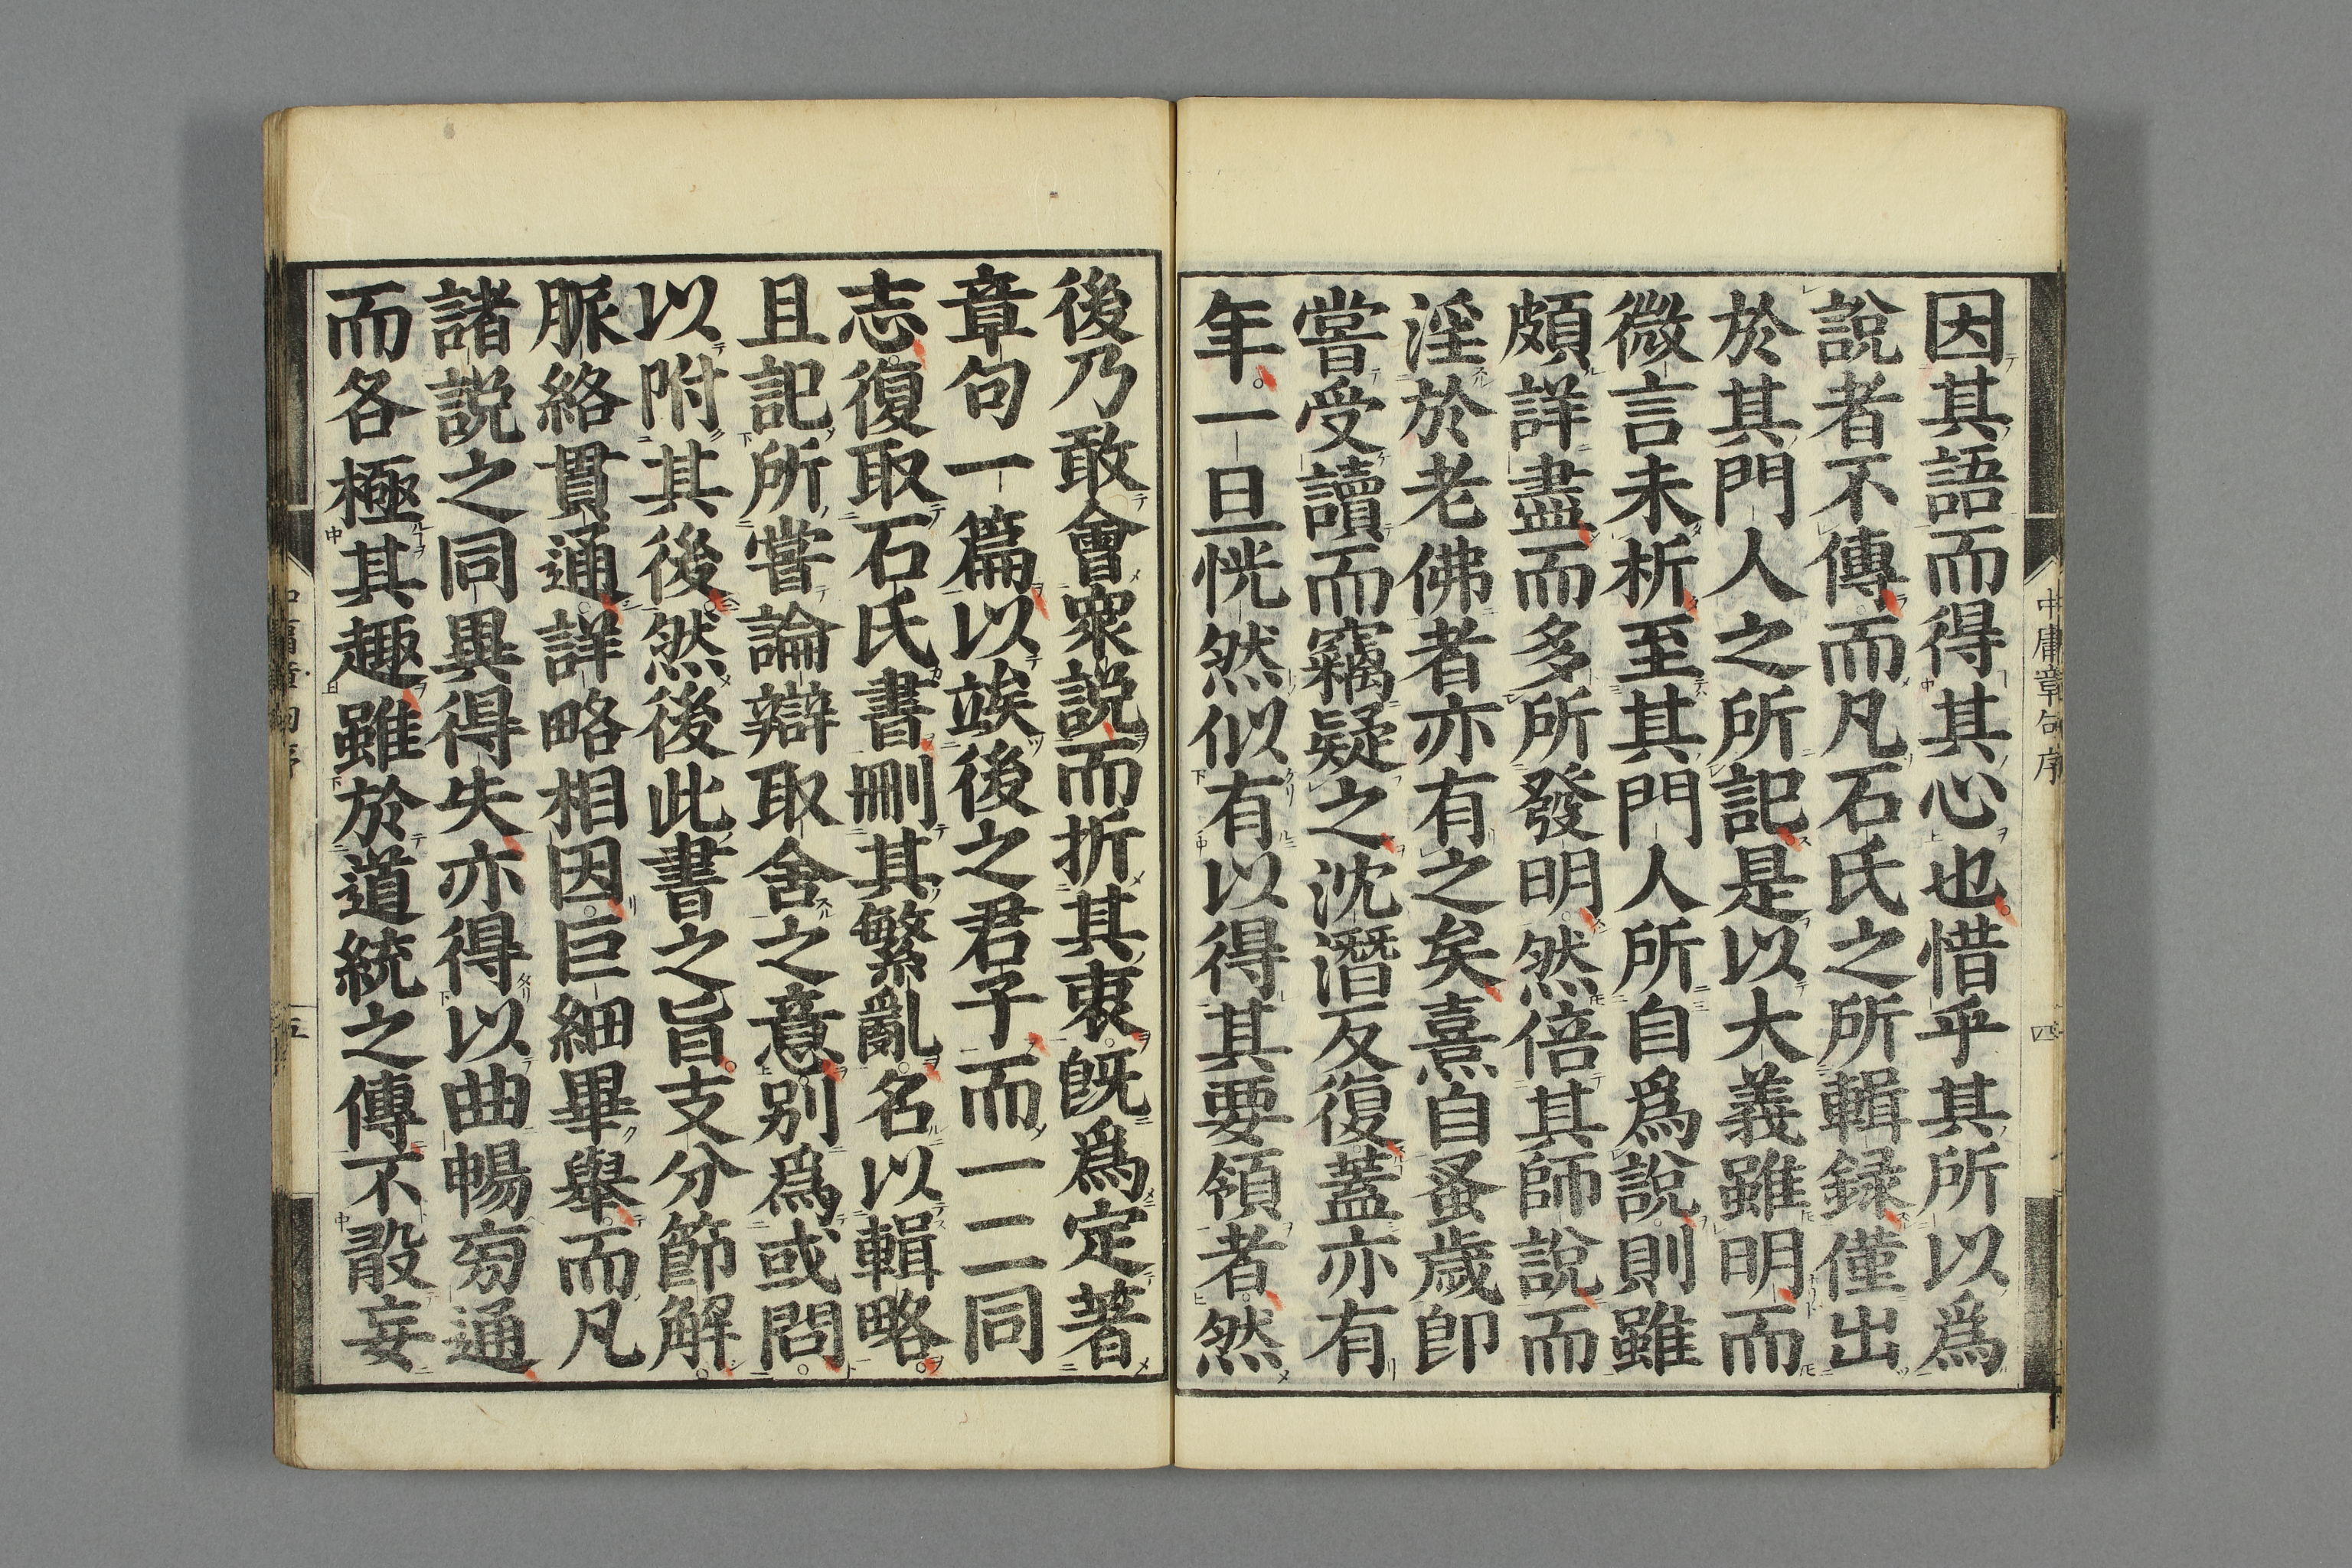 因其語而得其心也惜乎其所以爲
說者不傳而凡石氏之所輯録僅出
於其門人之所記是以大義雖明而
微言未析至其門人所自爲說則雖
頗詳盡而多所發明然倍其師說而
淫於老佛者亦有之矣熹自蚤歲即
嘗受讀而竊疑之沈潛反復蓋亦有
年一旦恍然似有以得其要領者然
中庸章句序
四
後乃敢會衆説而折其衷既爲定著
章句一篇以竢後之君子而一二同
志復取石氏書刪其繁亂名以輯略
且記所嘗論辯取舍之意別爲或問
以附其後然後此書之旨支分節解
脈絡貫通詳略相因巨細畢舉而凡
諸説之同異得失亦得以曲暢旁通
而各極其趣雖於道統之傳不敢妄
中庸章句序
五